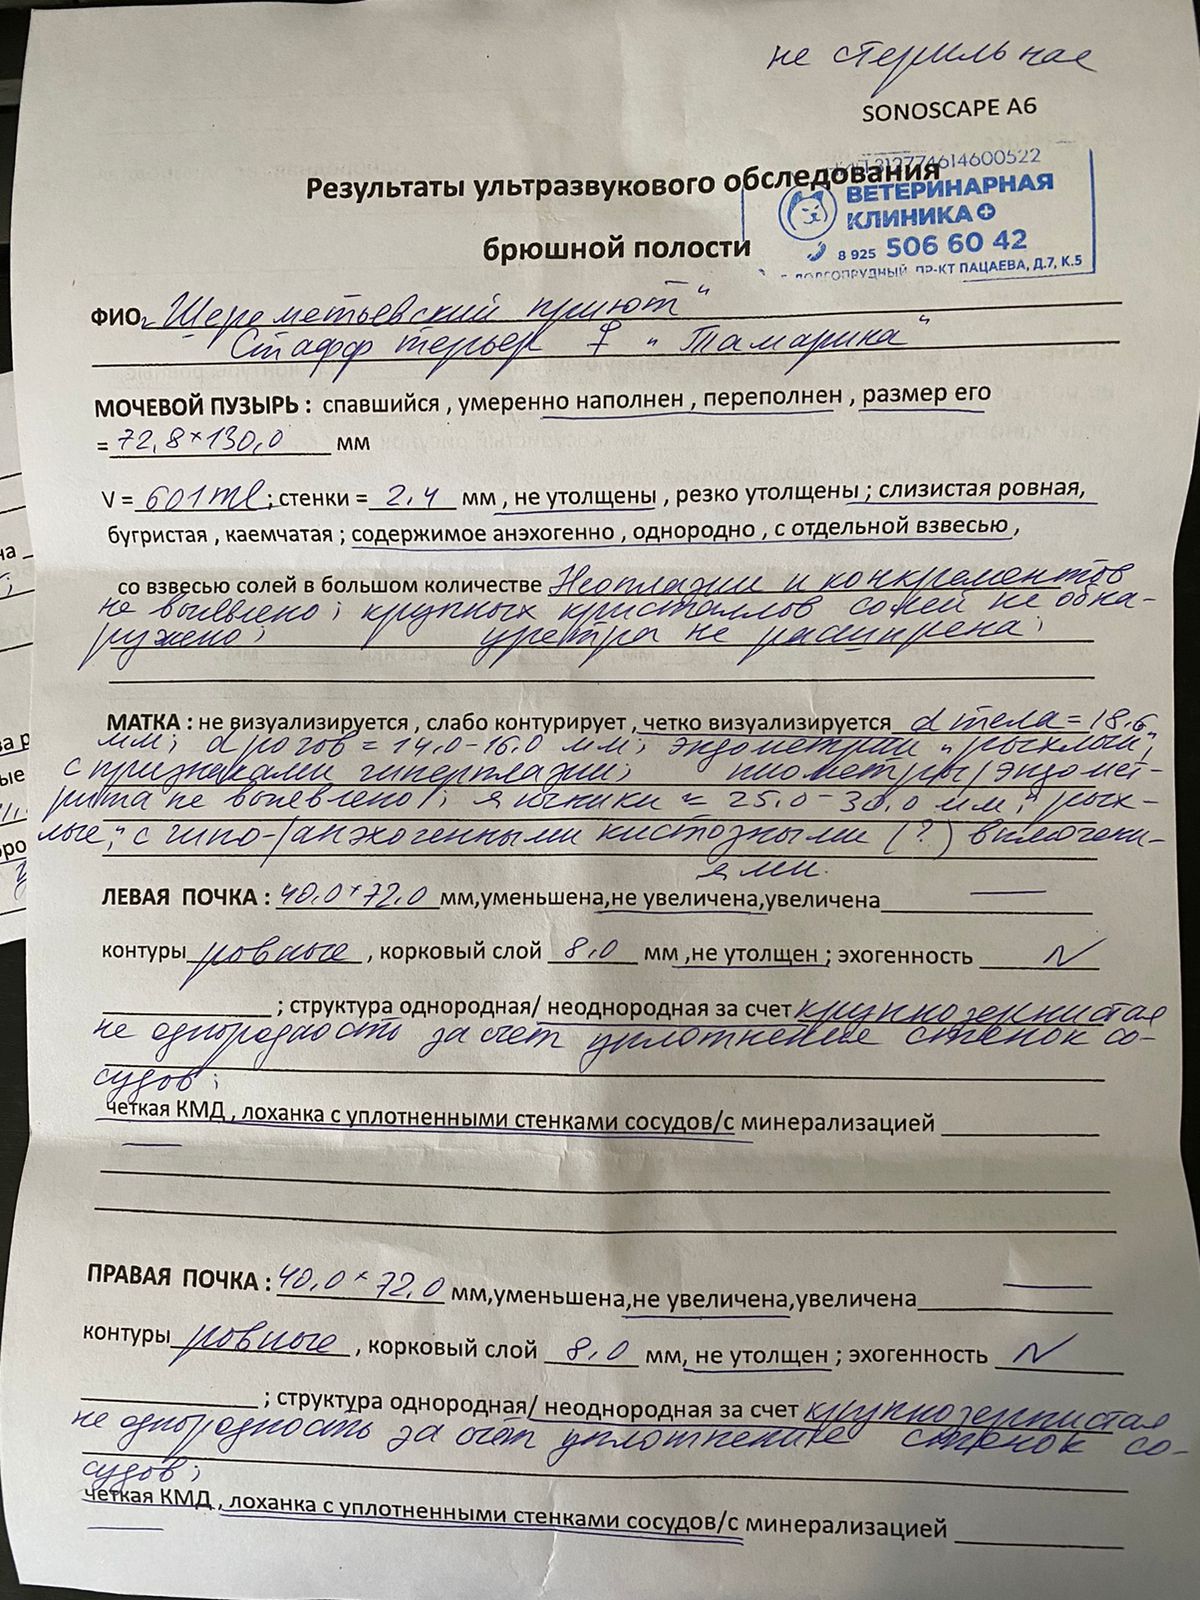 не стерильная
SONOSCAPE A6
312774614600522
Результаты ультразвукового обследования
ВЕТЕРИНАРНАЯ
КЛИНИКА
брюшной полости
8 925 506 60 42
Г. ДОЛГОПРУДНЫЙ, ПР-КТ ПАЦАЕВА, Д.7, К.5
ФИО „Шереметьевский приют“
Стафф терьер ♀ „Тамарина“
МОЧЕВОЙ ПУЗЫРЬ : спавшийся , умеренно наполнен , переполнен , размер его
= 72,8×130,0 мм
V = 601 ml ; стенки = 2,4 мм , не утолщены , резко утолщены ; слизистая ровная,
бугристая , каемчатая ; содержимое анэхогенно , однородно , с отдельной взвесью ,
со взвесью солей в большом количестве Неоплазии и конкрементов
не выявлено; крупных кристаллов солей не обна-
ружено; уретра не расширена;
МАТКА : не визуализируется , слабо контурирует , четко визуализируется d тела = 18,6
мм; d рогов = 14,0-16,0 мм; эндометрий „рыхлый“,
с признаками гиперплазии; пиометры/эндомет-
рита не выявлено; яичники ≈ 25,0-30,0 мм, „рых-
лые“, с гипо-/анэхогенными кистозными (?) включени-
ями.
ЛЕВАЯ ПОЧКА : 40,0×72,0 мм,уменьшена,не увеличена,увеличена
контуры ровные , корковый слой 8,0 мм ,не утолщен ; эхогенность N
; структура однородная/ неоднородная за счет крупнозернистая
неоднородность за счет уплотнения стенок со-
судов;
четкая КМД , лоханка с уплотненными стенками сосудов/с минерализацией
ПРАВАЯ ПОЧКА : 40,0×72,0 мм,уменьшена,не увеличена,увеличена
контуры ровные , корковый слой 8,0 мм, не утолщен ; эхогенность N
; структура однородная/ неоднородная за счет крупнозернистая
неоднородность за счёт уплотнения стенок со-
судов;
четкая КМД , лоханка с уплотненными стенками сосудов/с минерализацией